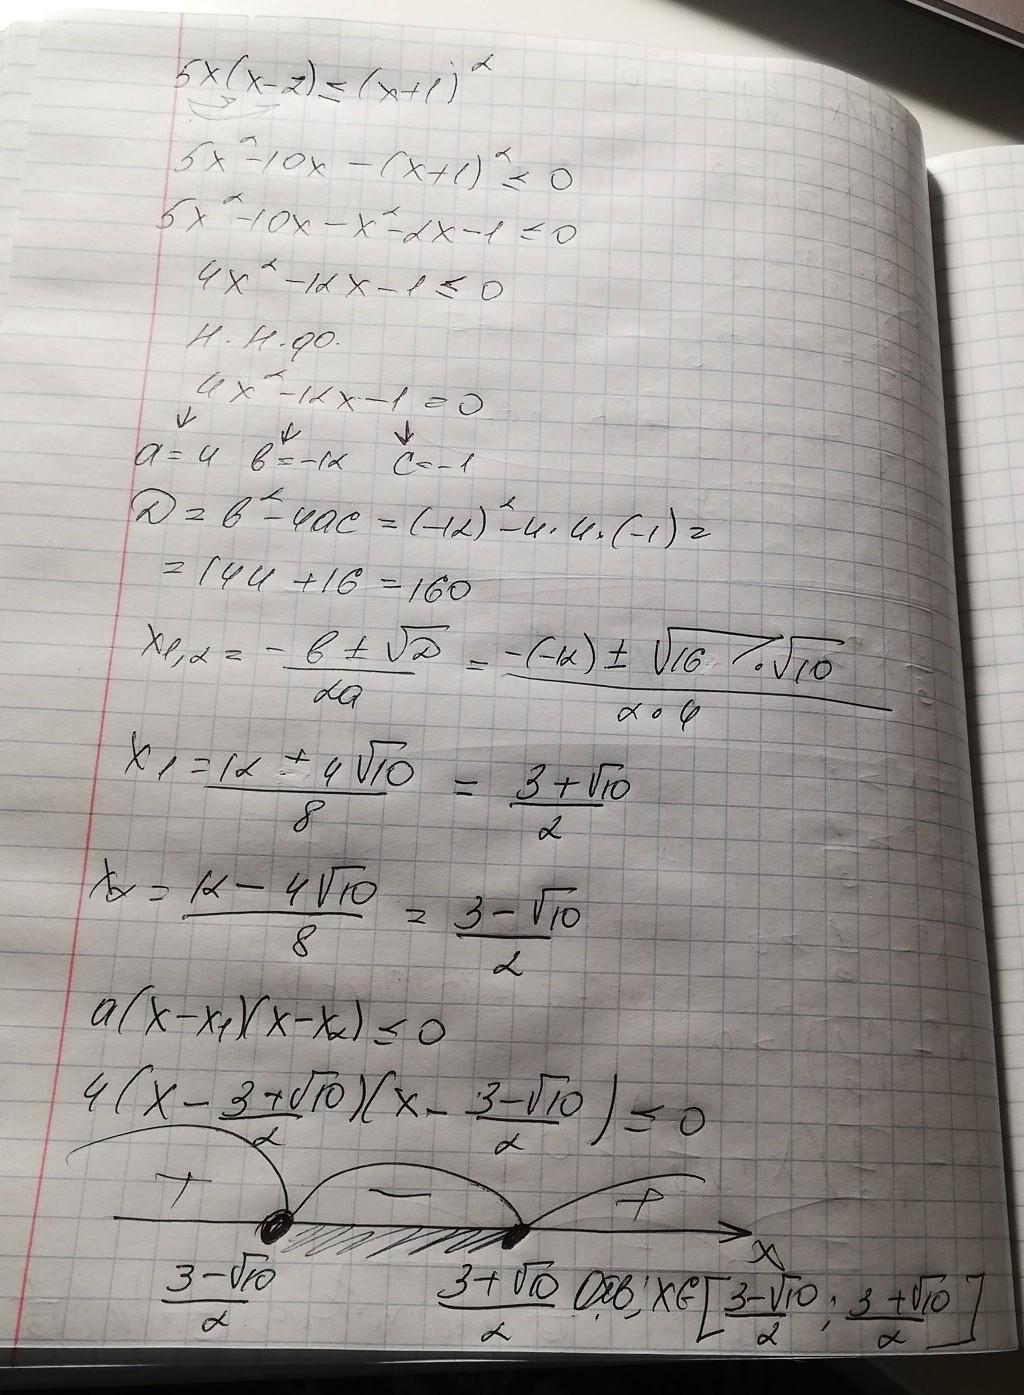 5x(x-2)≤(x+1)²
5x²-10x-(x+1)²≤0
5x²-10x-x²-2x-1≤0
4x²-12x-1≤0
Н.Н.ф.
4x²-12x-1=0
a=4 в=-12 c=-1
D=в²-4ac=(-12)²-4·4·(-1)=
=144+16=160
x₁,₂=-в±√D/2a=-(-12)±√16·√10/2·4
x₁=12±4√10/8=3+√10/2
x₂=12-4√10/8=3-√10/2
a(x-x₁)(x-x₂)≤0
4(x-3+√10/2)(x-3-√10/2)≤0
+ - +
x
3-√10/2 3+√10/2 Отв; x∈[3-√10/2;3+√10/2]